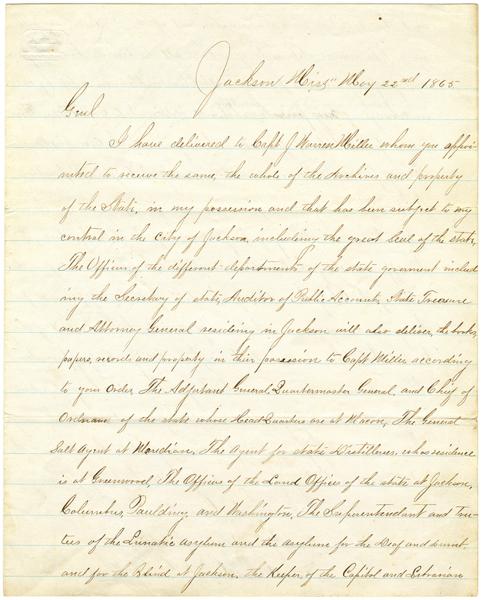 Jackson Miss" May 22nd 1865
Genl
I have delivered to Capt J Warren Miller whom you appoi-
nted to receive the same, the whole of the Archives and property
of the State, in my possession and that has been subject to my
control in the City of Jackson, including the great Seal of the state,
The Officers of the different departments of the state goverment includ-
ing the Secretary of state, Auditor of Public Accounts, State Treasure
and Attorney General residing in Jackson will also deliver, the books,
papers, records and property in their possession to Capt Miller according
to your Order, The Adjutant General, Quartermaster General, and Chief of
Ordnance of the state whose Head Quarters are at Macon, The General
Salt Agent at Meridian, The Agent for state Distillery, whose residence
is at Greenwood, The Officers of the Land Office of the state at Jackson,
Columbus, Paulding, and Washington, The Superentendant and trus-
tees of the Lunatic Asylum and the Asylum for the Deaf and dumb,
and for the Blind at Jackson, the Keeper of the Capitol and Librarian